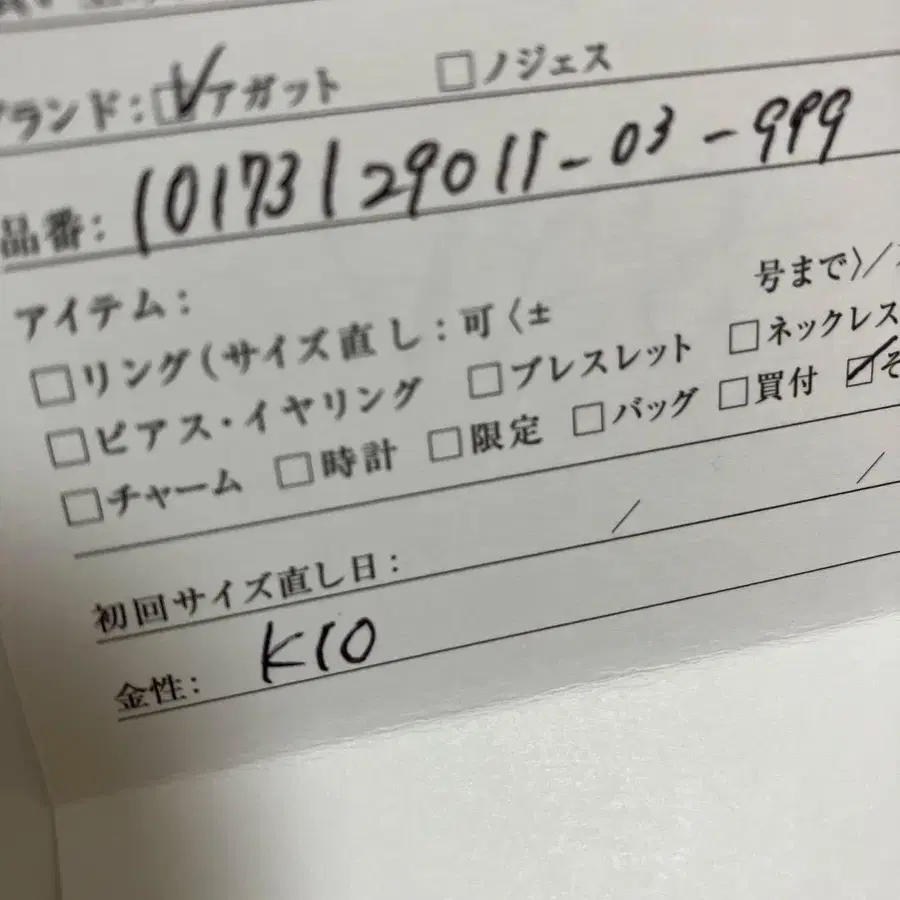 ブランド: ☑アガット □ノジェス
品番: 10173129011-03-999
アイテム:
□リング(サイズ直し:可〈± 号まで〉/
□ピアス・イヤリング □ブレスレット □ネックレス
□チャーム □時計 □限定 □バッグ □買付 ☑そ
初回サイズ直し日: / /
金性: K10